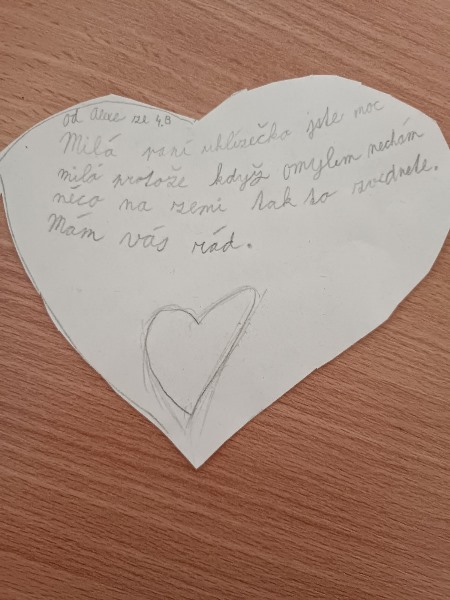 od Alexe ze 4.B
Milá paní uklízečko jste moc
milá protože když omylem nechám
něco na zemi tak to zvednete.
Mám vás rád.